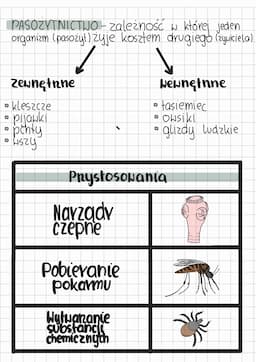 PASOŻYTNICTWO - zależność w której jeden
organizm (pasożyt) żyje kosztem drugiego (żywiciela)
zewnętrzne
wewnętrzne
kleszcze
pijawki
pchły
wszy
tasiemiec
owsiki
glizdy ludzkie
Przystosowania
Narządy
czepne
Pobieranie
pokarmu
Wytwarzanie
substancji
chemicznych